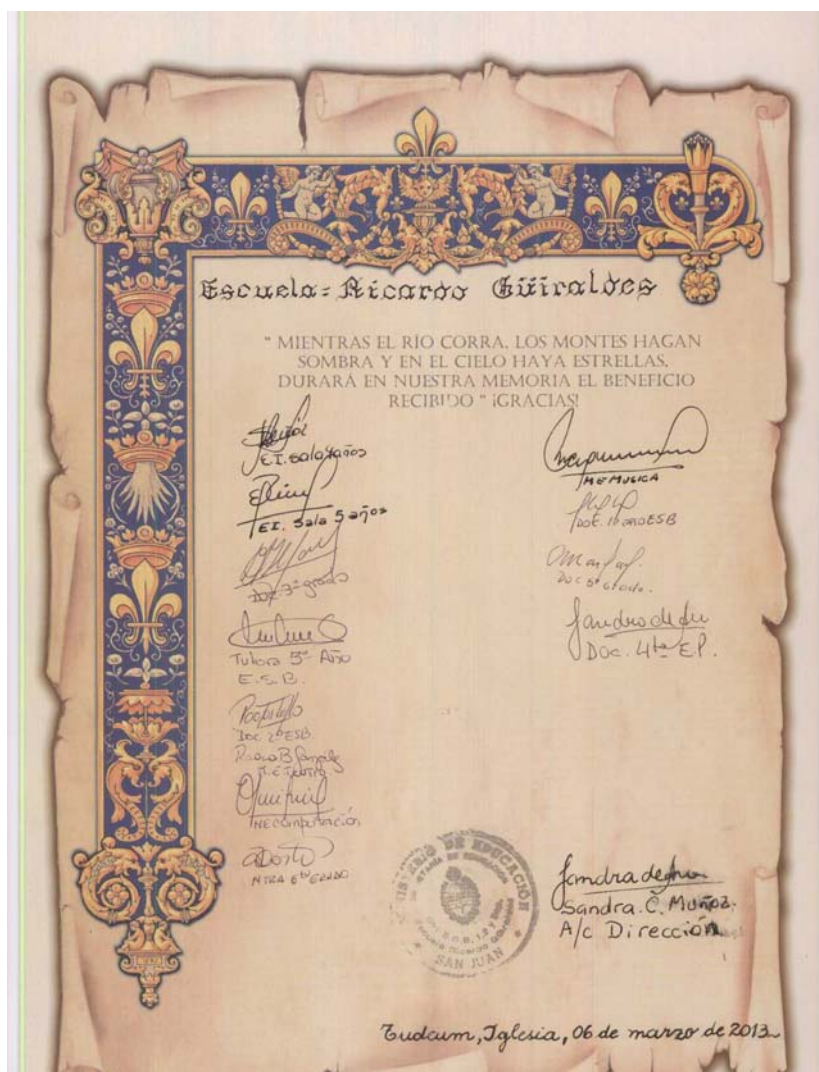 Escuela: Ricardo Güiraldes
" MIENTRAS EL RÍO CORRA, LOS MONTES HAGAN
SOMBRA Y EN EL CIELO HAYA ESTRELLAS,
DURARÁ EN NUESTRA MEMORIA EL BENEFICIO
RECIBIDO " ¡GRACIAS!
E.I. sala 4 años
EI. Sala 5 años
Doc. 3º grado
Tutora 3º Año
E.S.B.
Doc 2º ESB
M.E Teatro
ME Computación
MTRA 6to GRADO
ME MUSICA
Doc. 1º año ESB
Doc 5º Grado.
Doc. 4to E.P.
MINISTERIO DE EDUCACIÓN
SAN JUAN
Sandra. C. Muñoz.
A/c Dirección
Tudcum, Iglesia, 06 de marzo de 2013